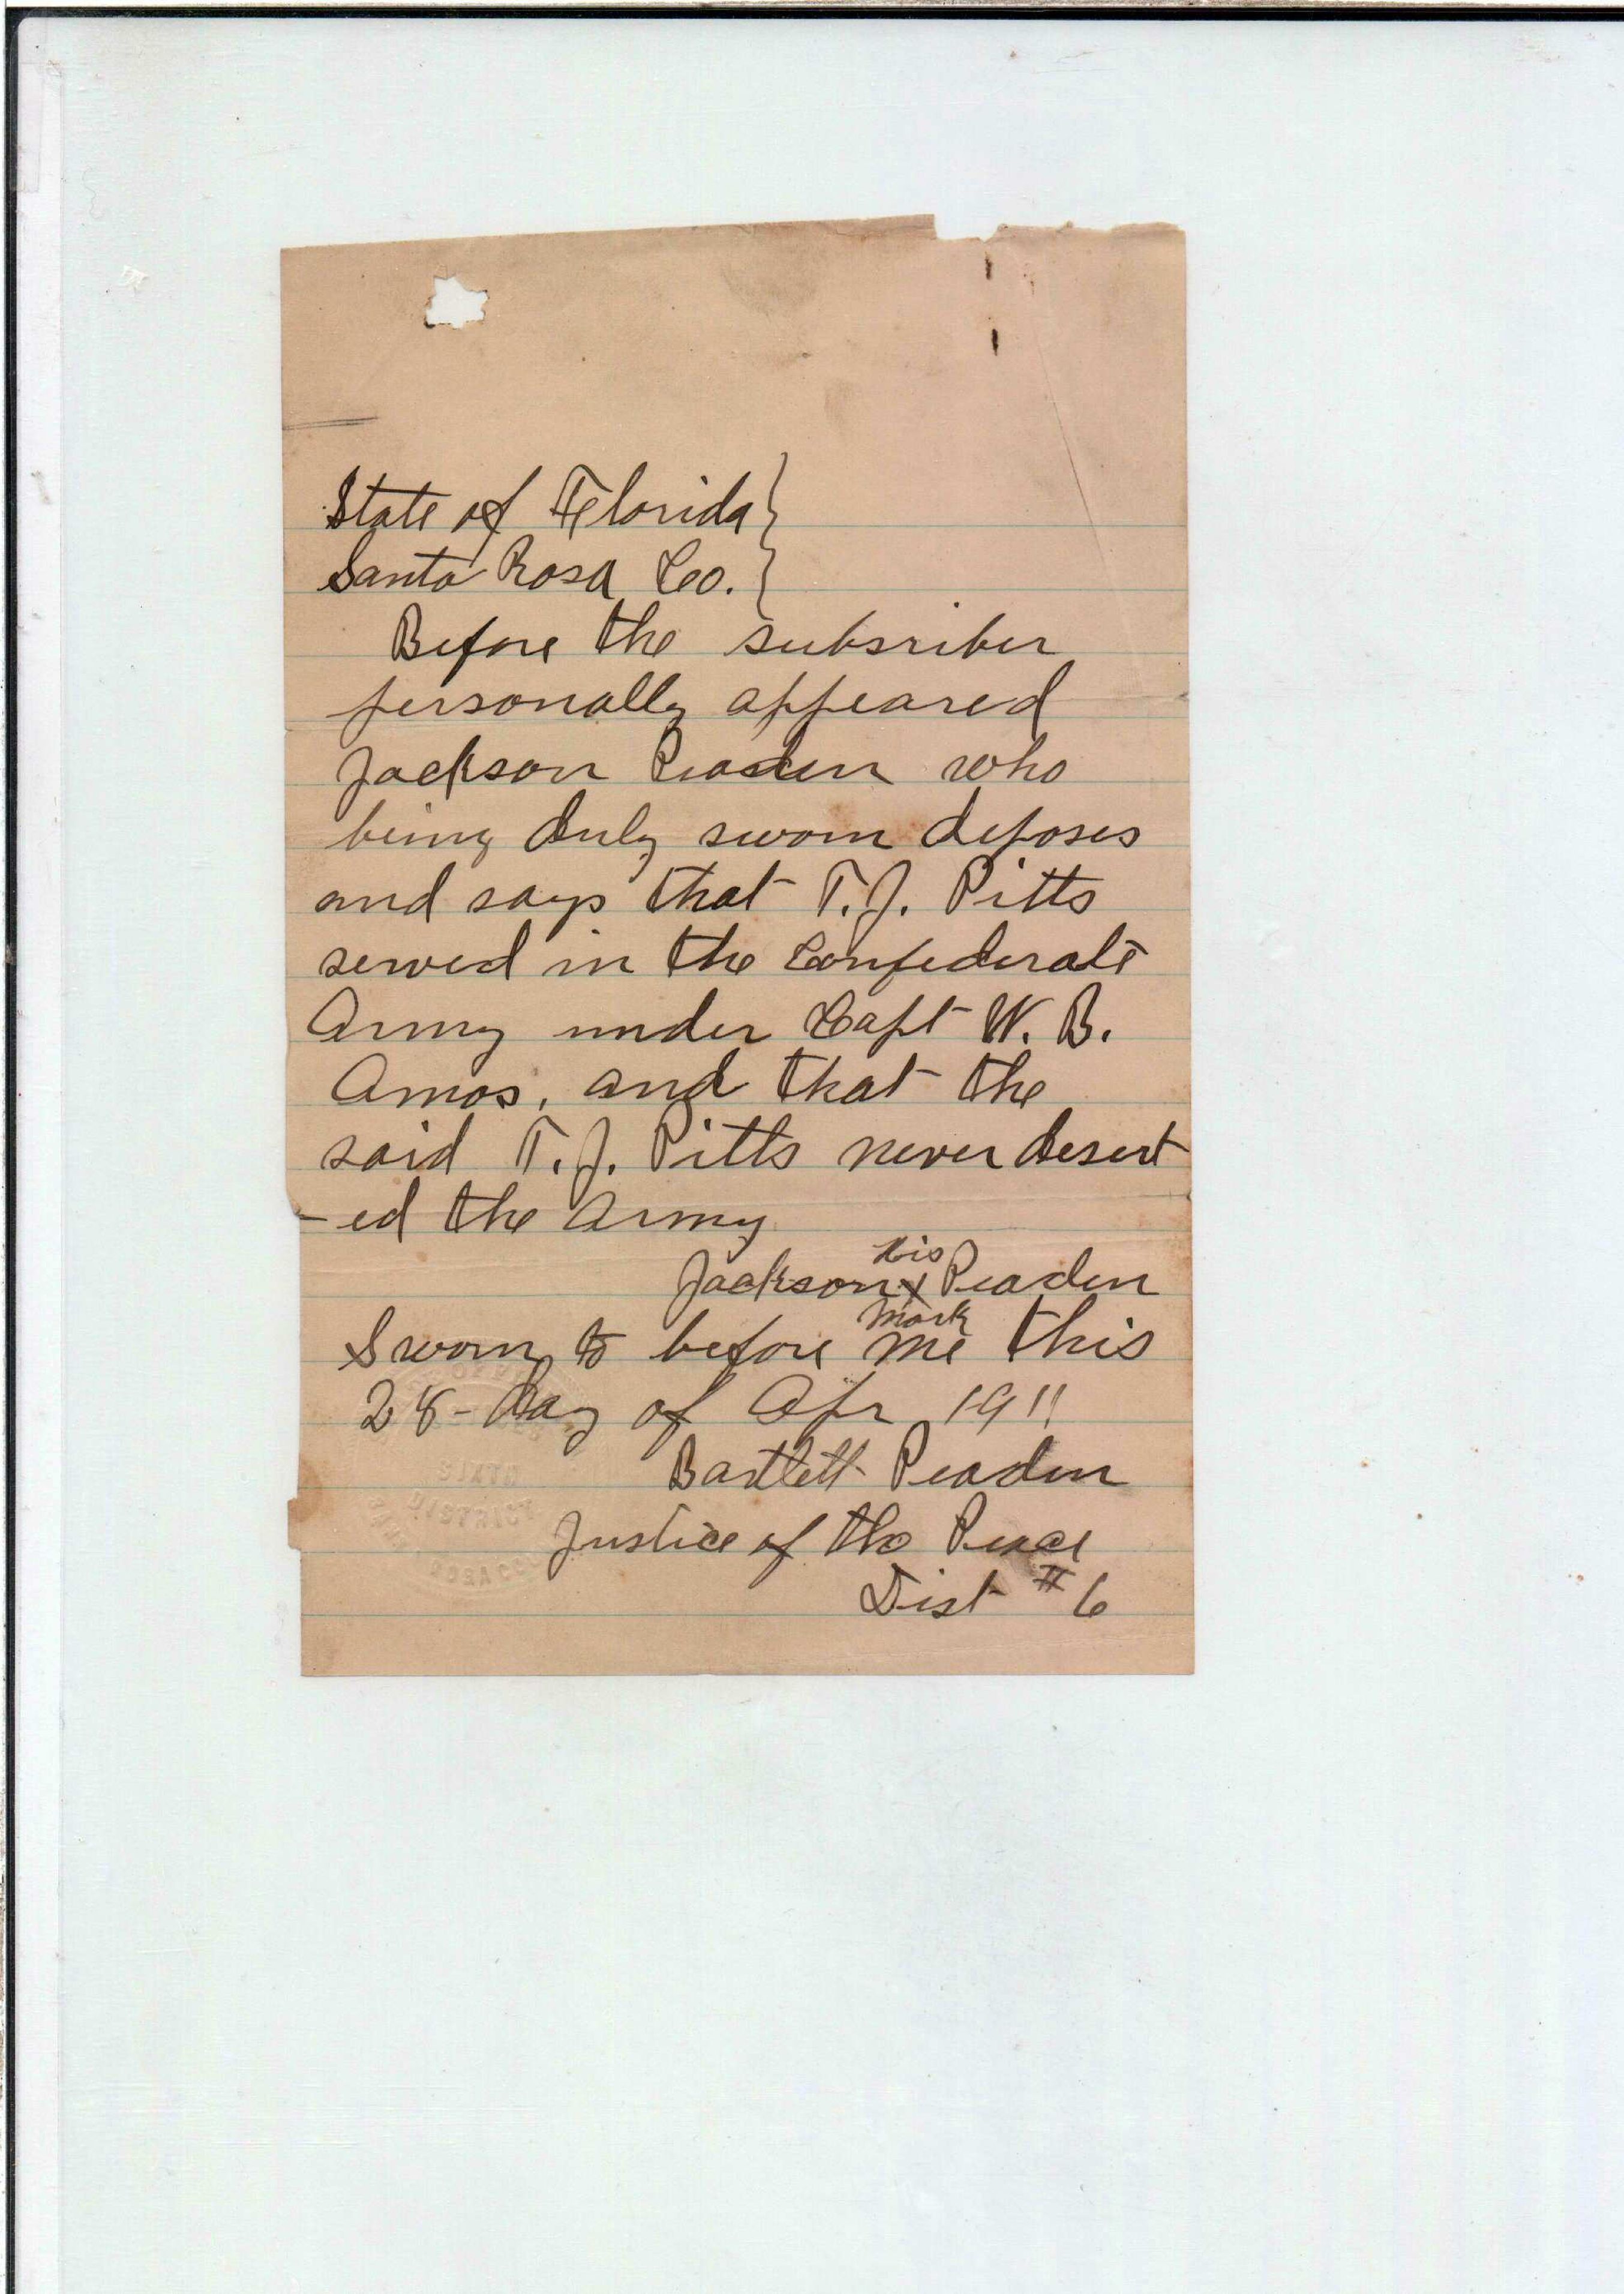 State of Florida }
Santa Rosa Co. }
Before the subsriber
personally appeared
Jackson Peaden who
being duly sworn deposes
and says that T. J. Pitts
served in the Confederate
Army under Capt W. B.
Amos, and that the
said T. J. Pitts never desert
-ed the Army
his
Jackson x Peaden
mark
Sworn to before me this
28 - day of Apr 1911
Bartlett Peaden
Justice of the Peace
Dist # 6
SIXTH
DISTRICT